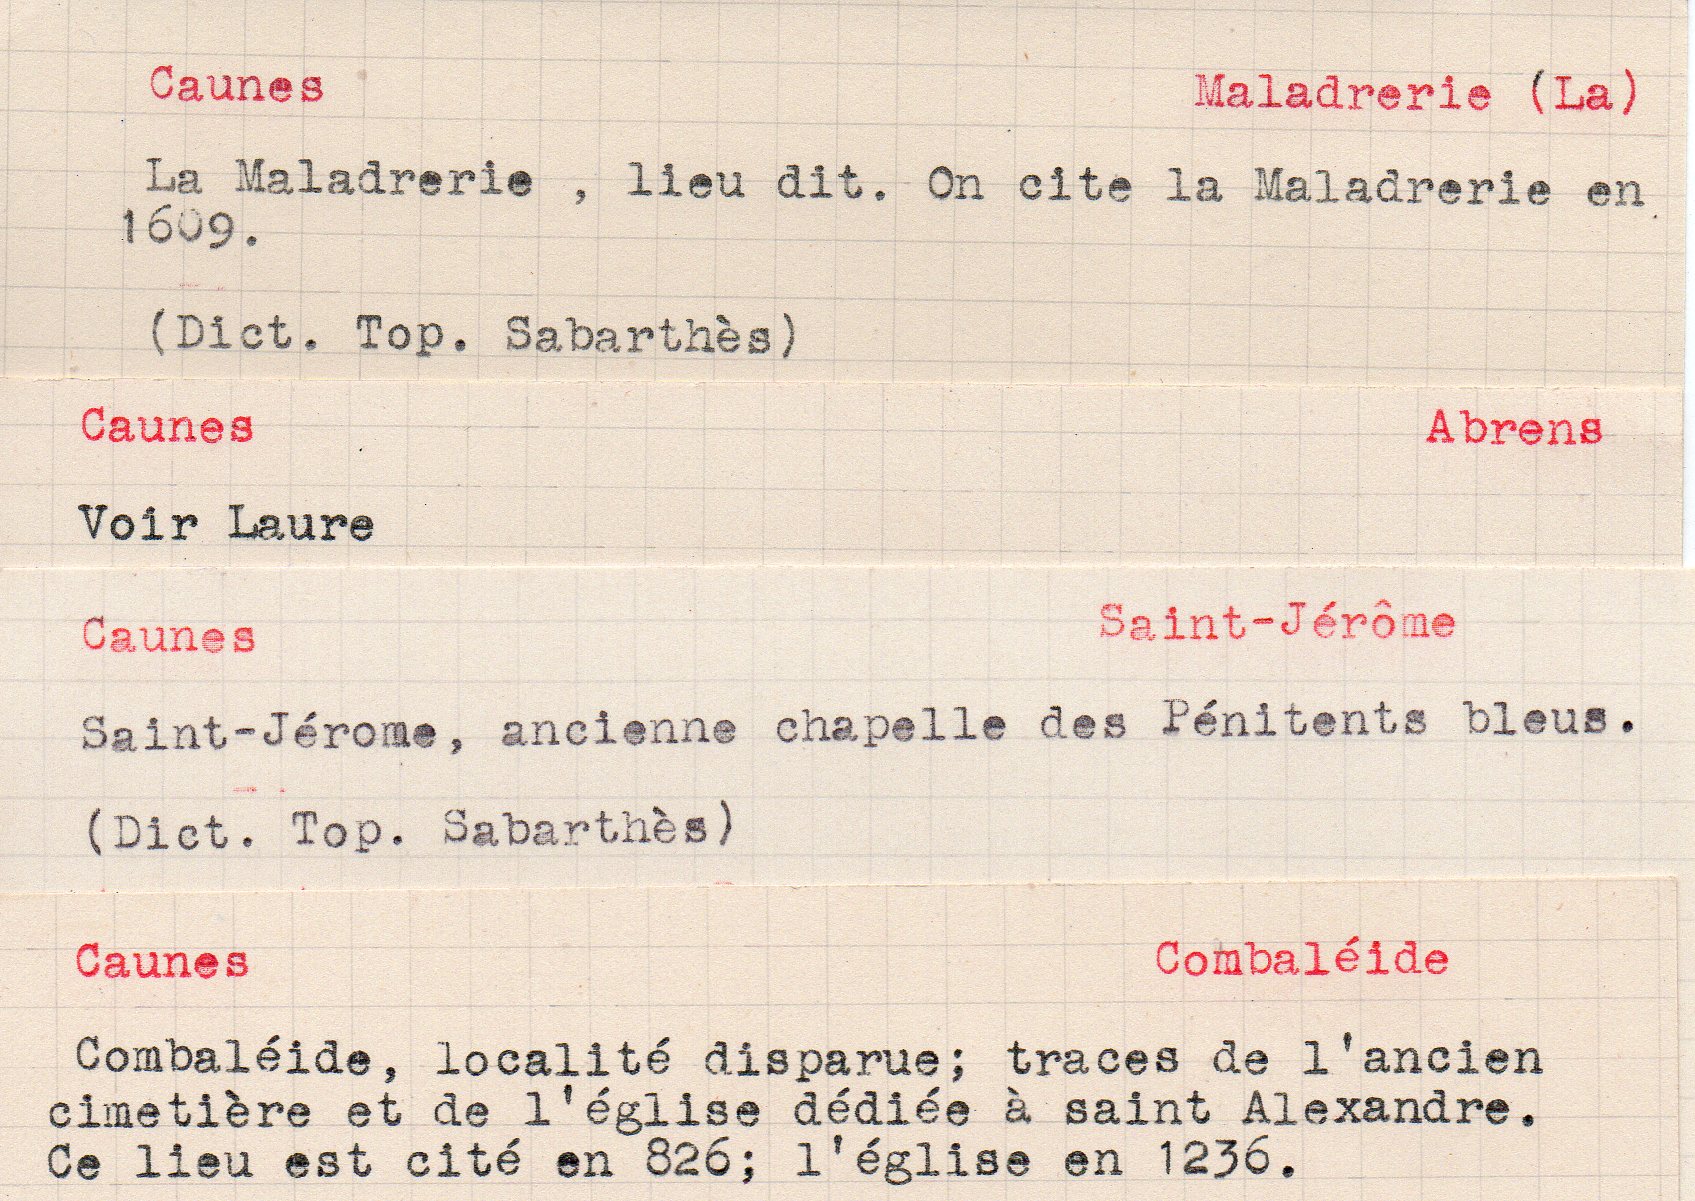 Caunes Maladrerie (La)
La Maladrerie , lieu dit. On cite la Maladrerie en
1609.
(Dict. Top. Sabarthès)
Caunes Abrens
Voir Laure
Caunes Saint-Jérôme
Saint-Jérome, ancienne chapelle des Pénitents bleus.
(Dict. Top. Sabarthès)
Caunes Combaléide
Combaléide, localité disparue; traces de l'ancien
cimetière et de l'église dédiée à saint Alexandre.
Ce lieu est cité en 826; l'église en 1236.